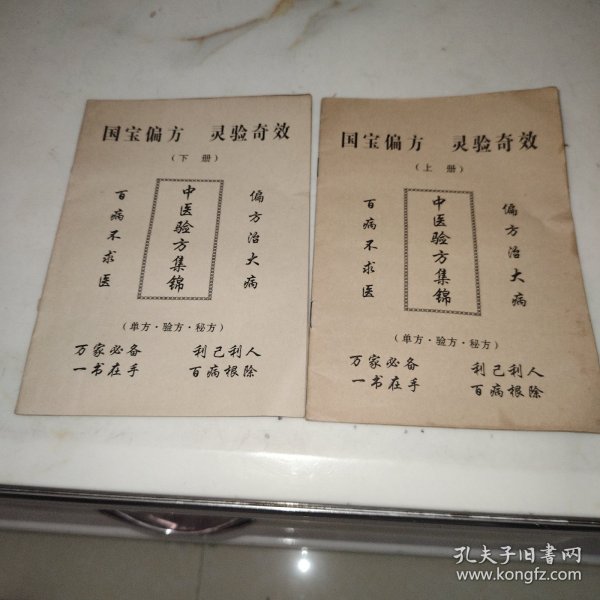 国宝偏方 灵验奇效
（下 册）
偏方治大病
中医验方集锦
百病不求医
（单方·验方·秘方）
万家必备 利己利人
一书在手 百病根除
国宝偏方 灵验奇效
（上 册）
偏方治大病
中医验方集锦
百病不求医
（单方·验方·秘方）
万家必备 利己利人
一书在手 百病根除
孔夫子旧书网
www.kongfz.com